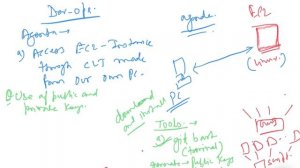 Dev-Ops.
Agenda →
a) Access EC2-Instance
through CLI mode
from our own PC.
Use of public and
private keys
agenda.
EC2
(Linux)
PC
download
and install
Tools →
a) git bash
(terminal)
generate → Public Key
aws